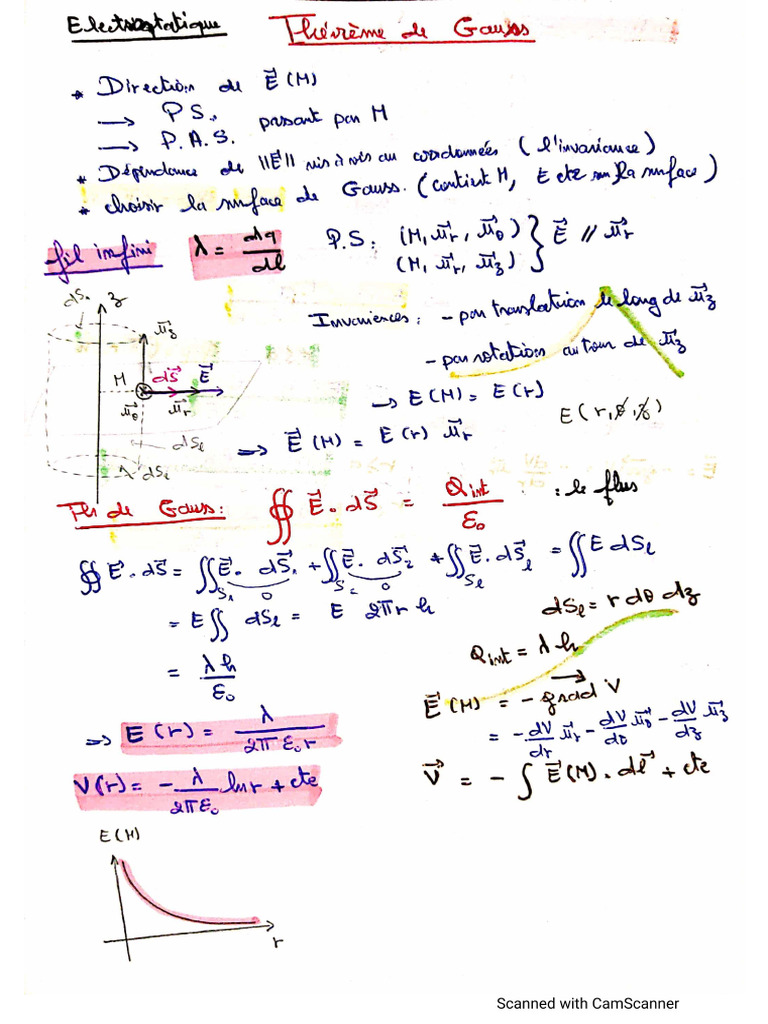 Electrostatique
Théorème de Gauss
* Direction de E⃗(M)
→ P.S.
→ P.A.S. passant par M
* Dépendance de ||E⃗|| vis à vis au coordonnées (l'invariance)
* choisir la surface de Gauss. (contient M, E cte sur la surface)
fil infini λ = dq/dl
P.S : (M, u⃗r, u⃗θ) } E⃗ // u⃗r
(M, u⃗r, u⃗z)
Invariences : - par translation le long de u⃗z
- par rotation autour de u⃗z
→ E(M) = E(r)
E(r, θ, z)
⇒ E⃗(M) = E(r) u⃗r
dS z
u⃗z
M dS⃗ E⃗
u⃗θ u⃗r
dSl
λ dSl
Th de Gauss : ∯ E⃗. dS⃗ = Qint/ε0 : le flux
∯ E⃗. dS⃗ = ∬S1 E⃗. dS⃗1 + ∬S2 E⃗. dS⃗2 + ∬Sl E⃗. dS⃗l = ∬ E dSl
0 0
= E ∬ dSl = E 2πr h
dSl = r dθ dz
Qint = λ h
= λh/ε0
E⃗(M) = - grad V
= - dV/dr u⃗r - dV/dθ u⃗θ - dV/dz u⃗z
⇒ E(r) = λ/2πε0r
V⃗ = - ∫ E⃗(M). dl⃗ + cte
V(r) = - λ/2πε0 ln r + cte
E(M)
r
Scanned with CamScanner